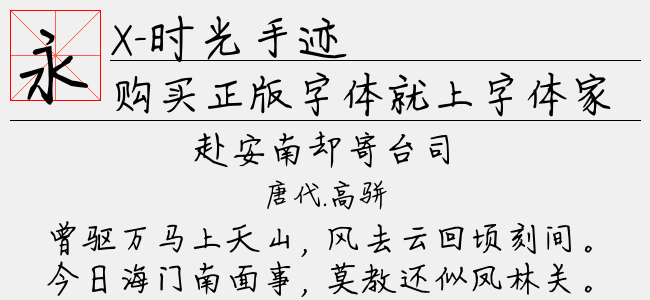 永
X-时光手迹
购买正版字体就上字体家
赴安南却寄台司
唐代.高骈
曾驱万马上天山，风去云回顷刻间。
今日海门南面事，莫教还似凤林关。